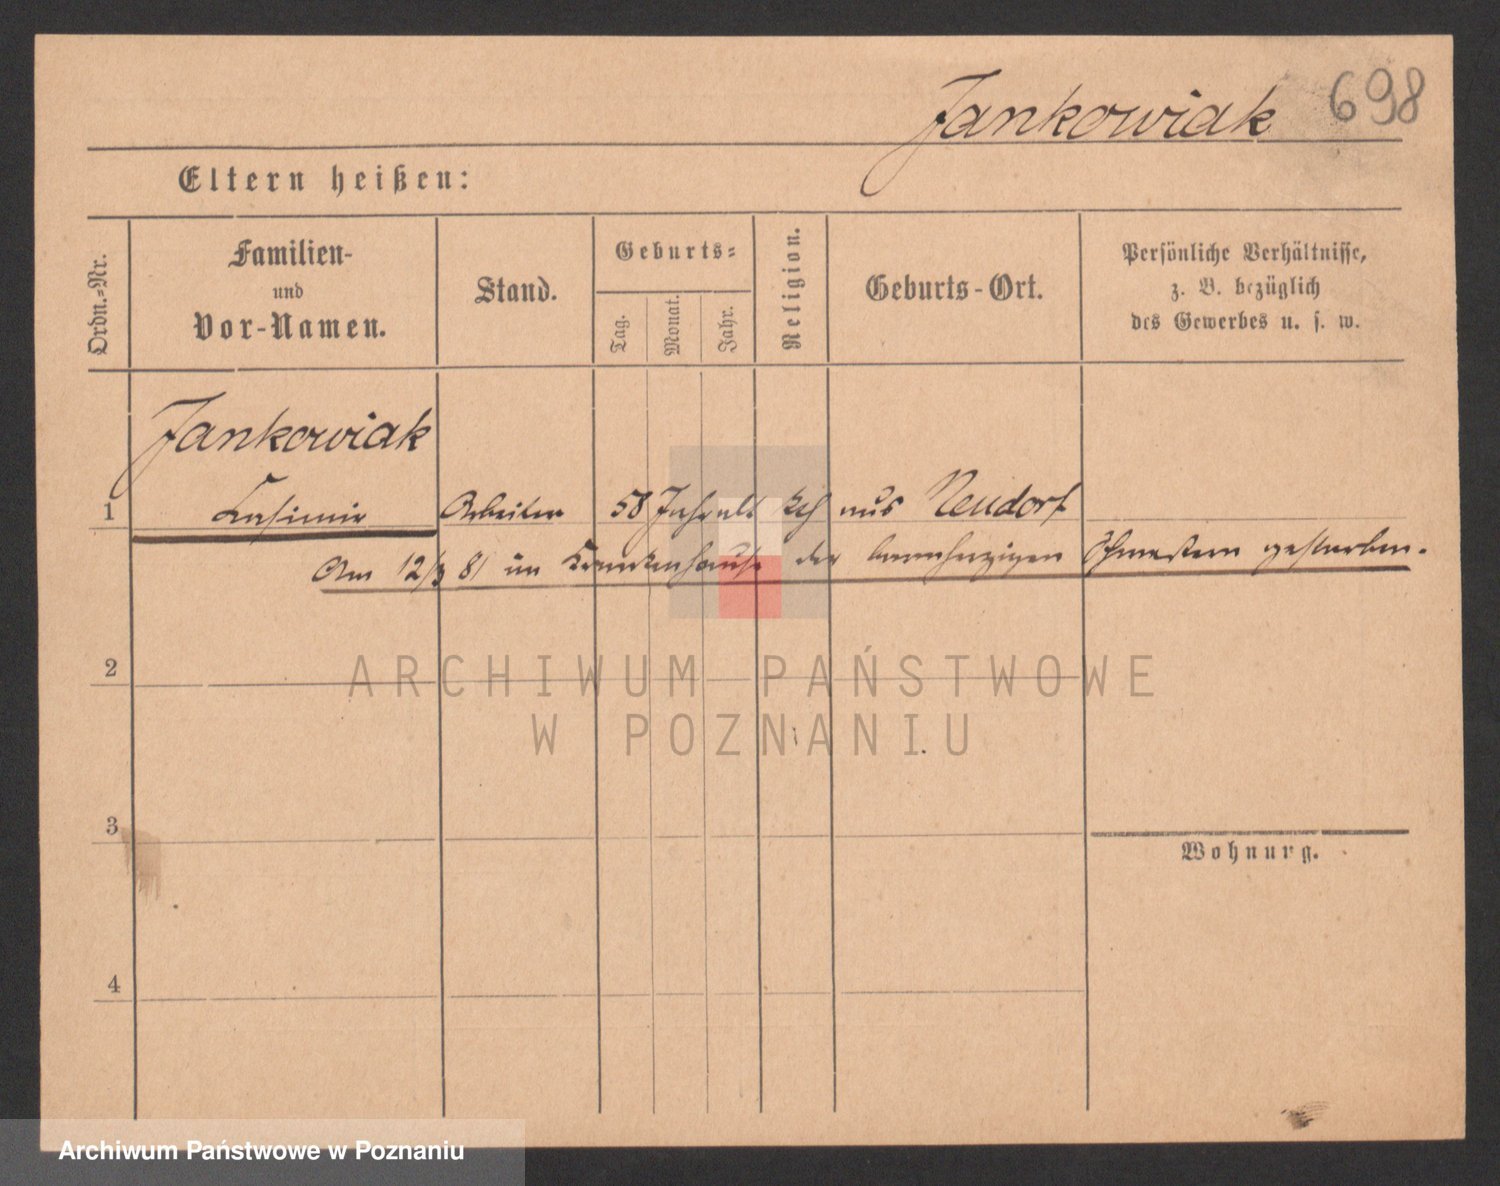 Jankowiak 698
Eltern heißen:
Ordn.-Nr.
Familien-
und
Vor-Namen.
Stand.
Geburts-
Tag.
Monat.
Jahr.
Religion.
Geburts-Ort.
Persönliche Verhältnisse,
z. B. bezüglich
des Gewerbes u. s. w.
Jankowiak
1 Casimir Arbeiter 58 Jahr alt kth aus Neudorf
Am 12/3 81 im Krankenhause der barmherzigen Schwestern gestorben.
2
ARCHIWUM PAŃSTWOWE
W POZNANIU
3
Wohnung.
4
Archiwum Państwowe w Poznaniu